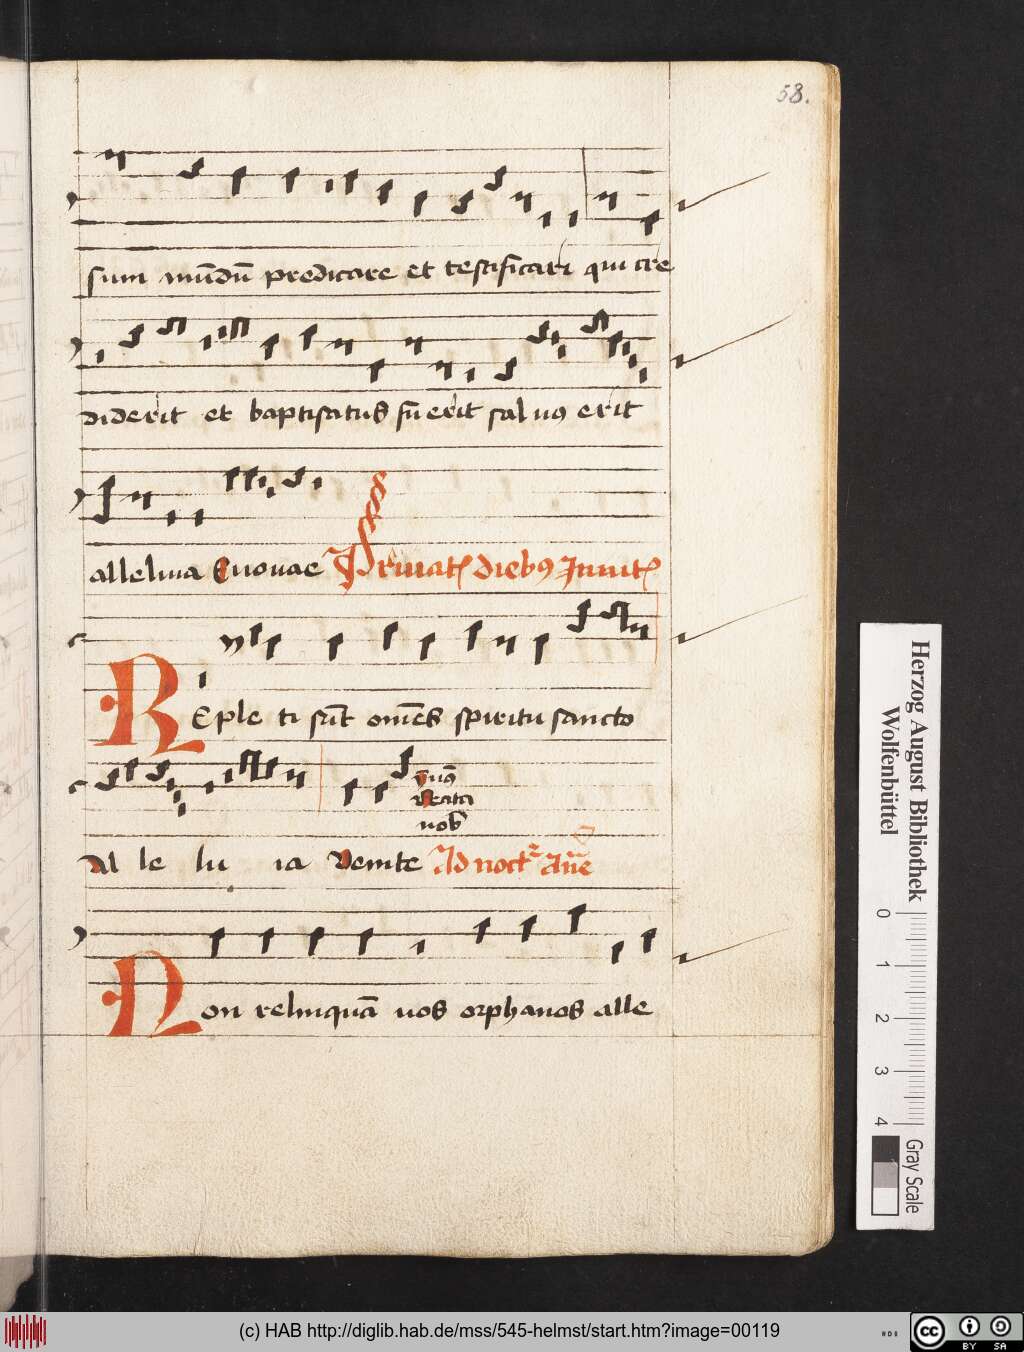 58.
sum mūdū predicare et testificari qui cre
diderit et baptisatus fu̅erit saluꝯ erit
alleluia Euouae Priuat̄ diebꝯ Inuit̄
REple ti sūt om̄es spiritu sancto
Al le lu ia Venite Ad noct̄ Añe
Non relinquā uos orphanos alle
Herzog August Bibliothek
Wolfenbüttel
0 1 2 3 4
Gray Scale
(c) HAB http://diglib.hab.de/mss/545-helmst/start.htm?image=00119
cc BY SA